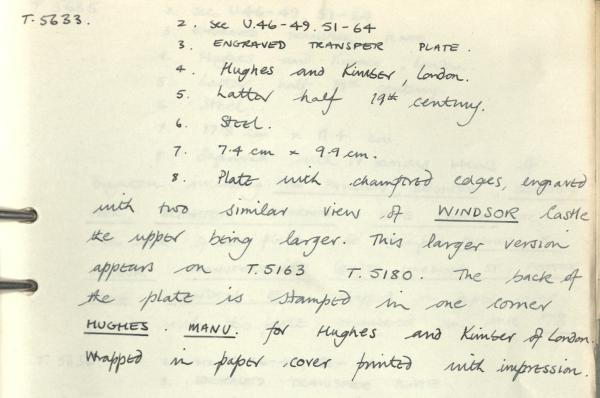 T.5633. 2. see U.46-49. 51-64
3. ENGRAVED TRANSFER PLATE.
4. Hughes and Kimber, London.
5. Latter half 19th century.
6. Steel.
7. 7.4 cm x 9.9 cm.
8. Plate with chamfered edges, engraved
with two similar view of WINDSOR Castle
the upper being larger. This larger version
appears on T.5163 T.5180. The back of
the plate is stamped in one corner
HUGHES. MANU. for Hughes and Kimber of London.
Wrapped in paper cover printed with impression.